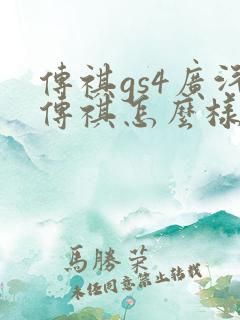 傳祺gs4廣汽
傳祺怎麼樣
馬勝榮
未經同意禁止轉載